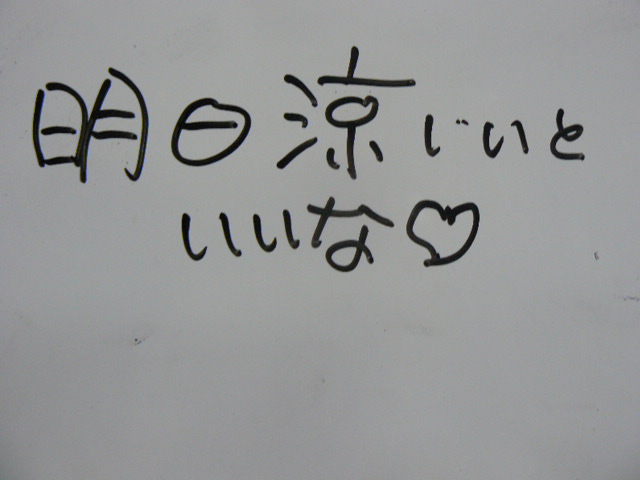 明日涼じいと
いいな♡